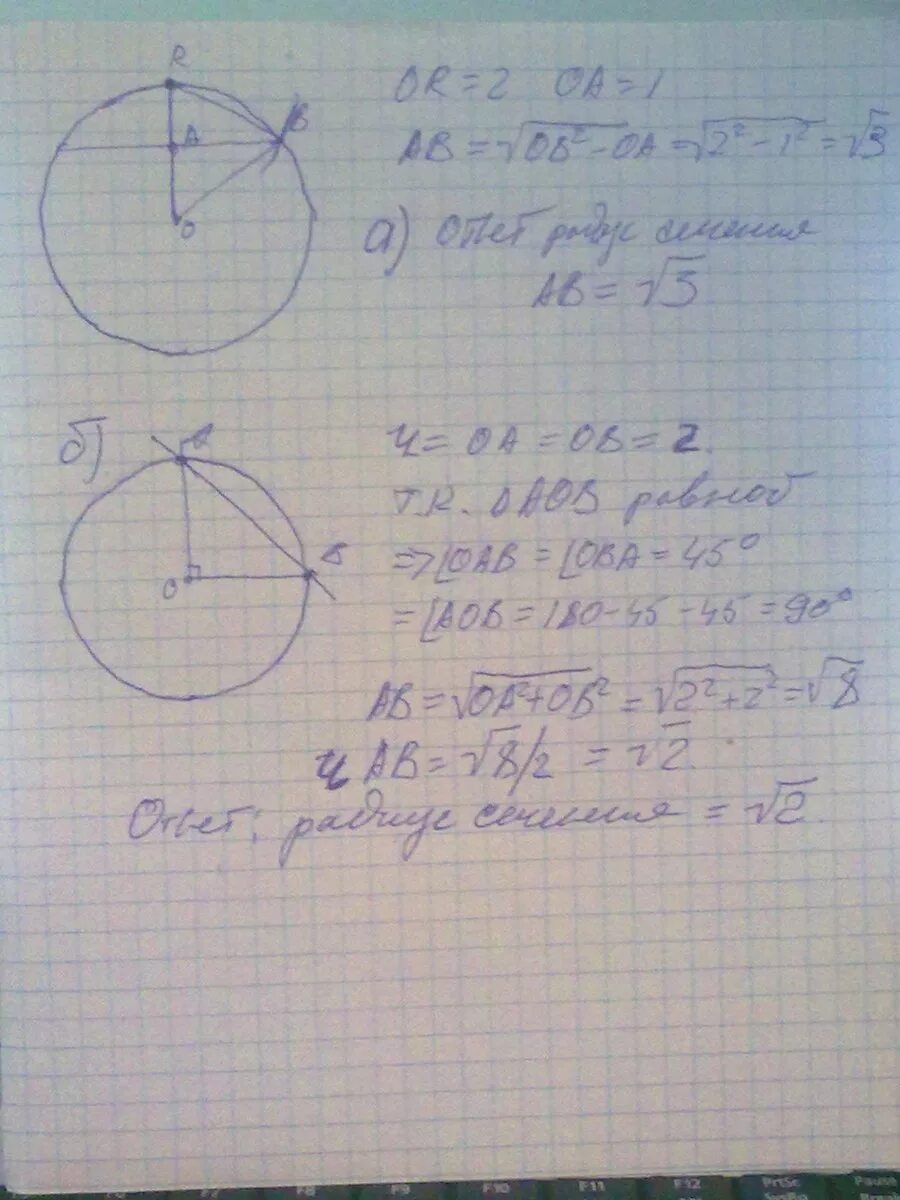 R
A
B
O
OR = 2 OA = 1
AB = √OB² - OA = √2² - 1² = √3
а) Ответ радиус сечения
AB = √3
б)
O
B
r = OA = OB = 2.
т.к. ΔAOB равноб
=> ∠OAB = ∠OBA = 45°
= ∠AOB = 180 - 45 - 45 = 90°
AB = √OA² + OB² = √2² + 2² = √8
r AB = √8/2 = √2.
Ответ: радиус сечения = √2.
F7 F8 F9 F10 F11 F12 PrtSc Pause